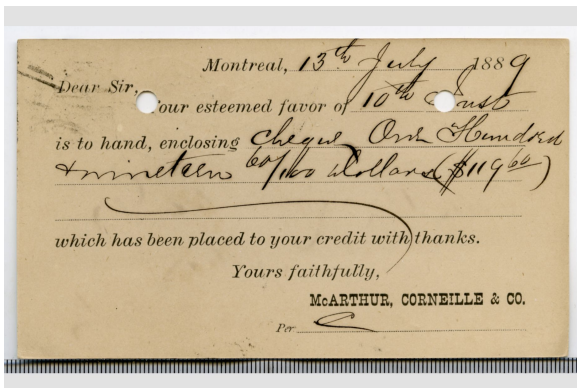 Montreal, 13th July 1889
Dear Sir,
Your esteemed favor of 10th Inst
is to hand, enclosing cheque One Hundred
& nineteen 60/100 Dollars ($119 60)
which has been placed to your credit with thanks.
Yours faithfully,
McARTHUR, CORNEILLE & CO.
Per C